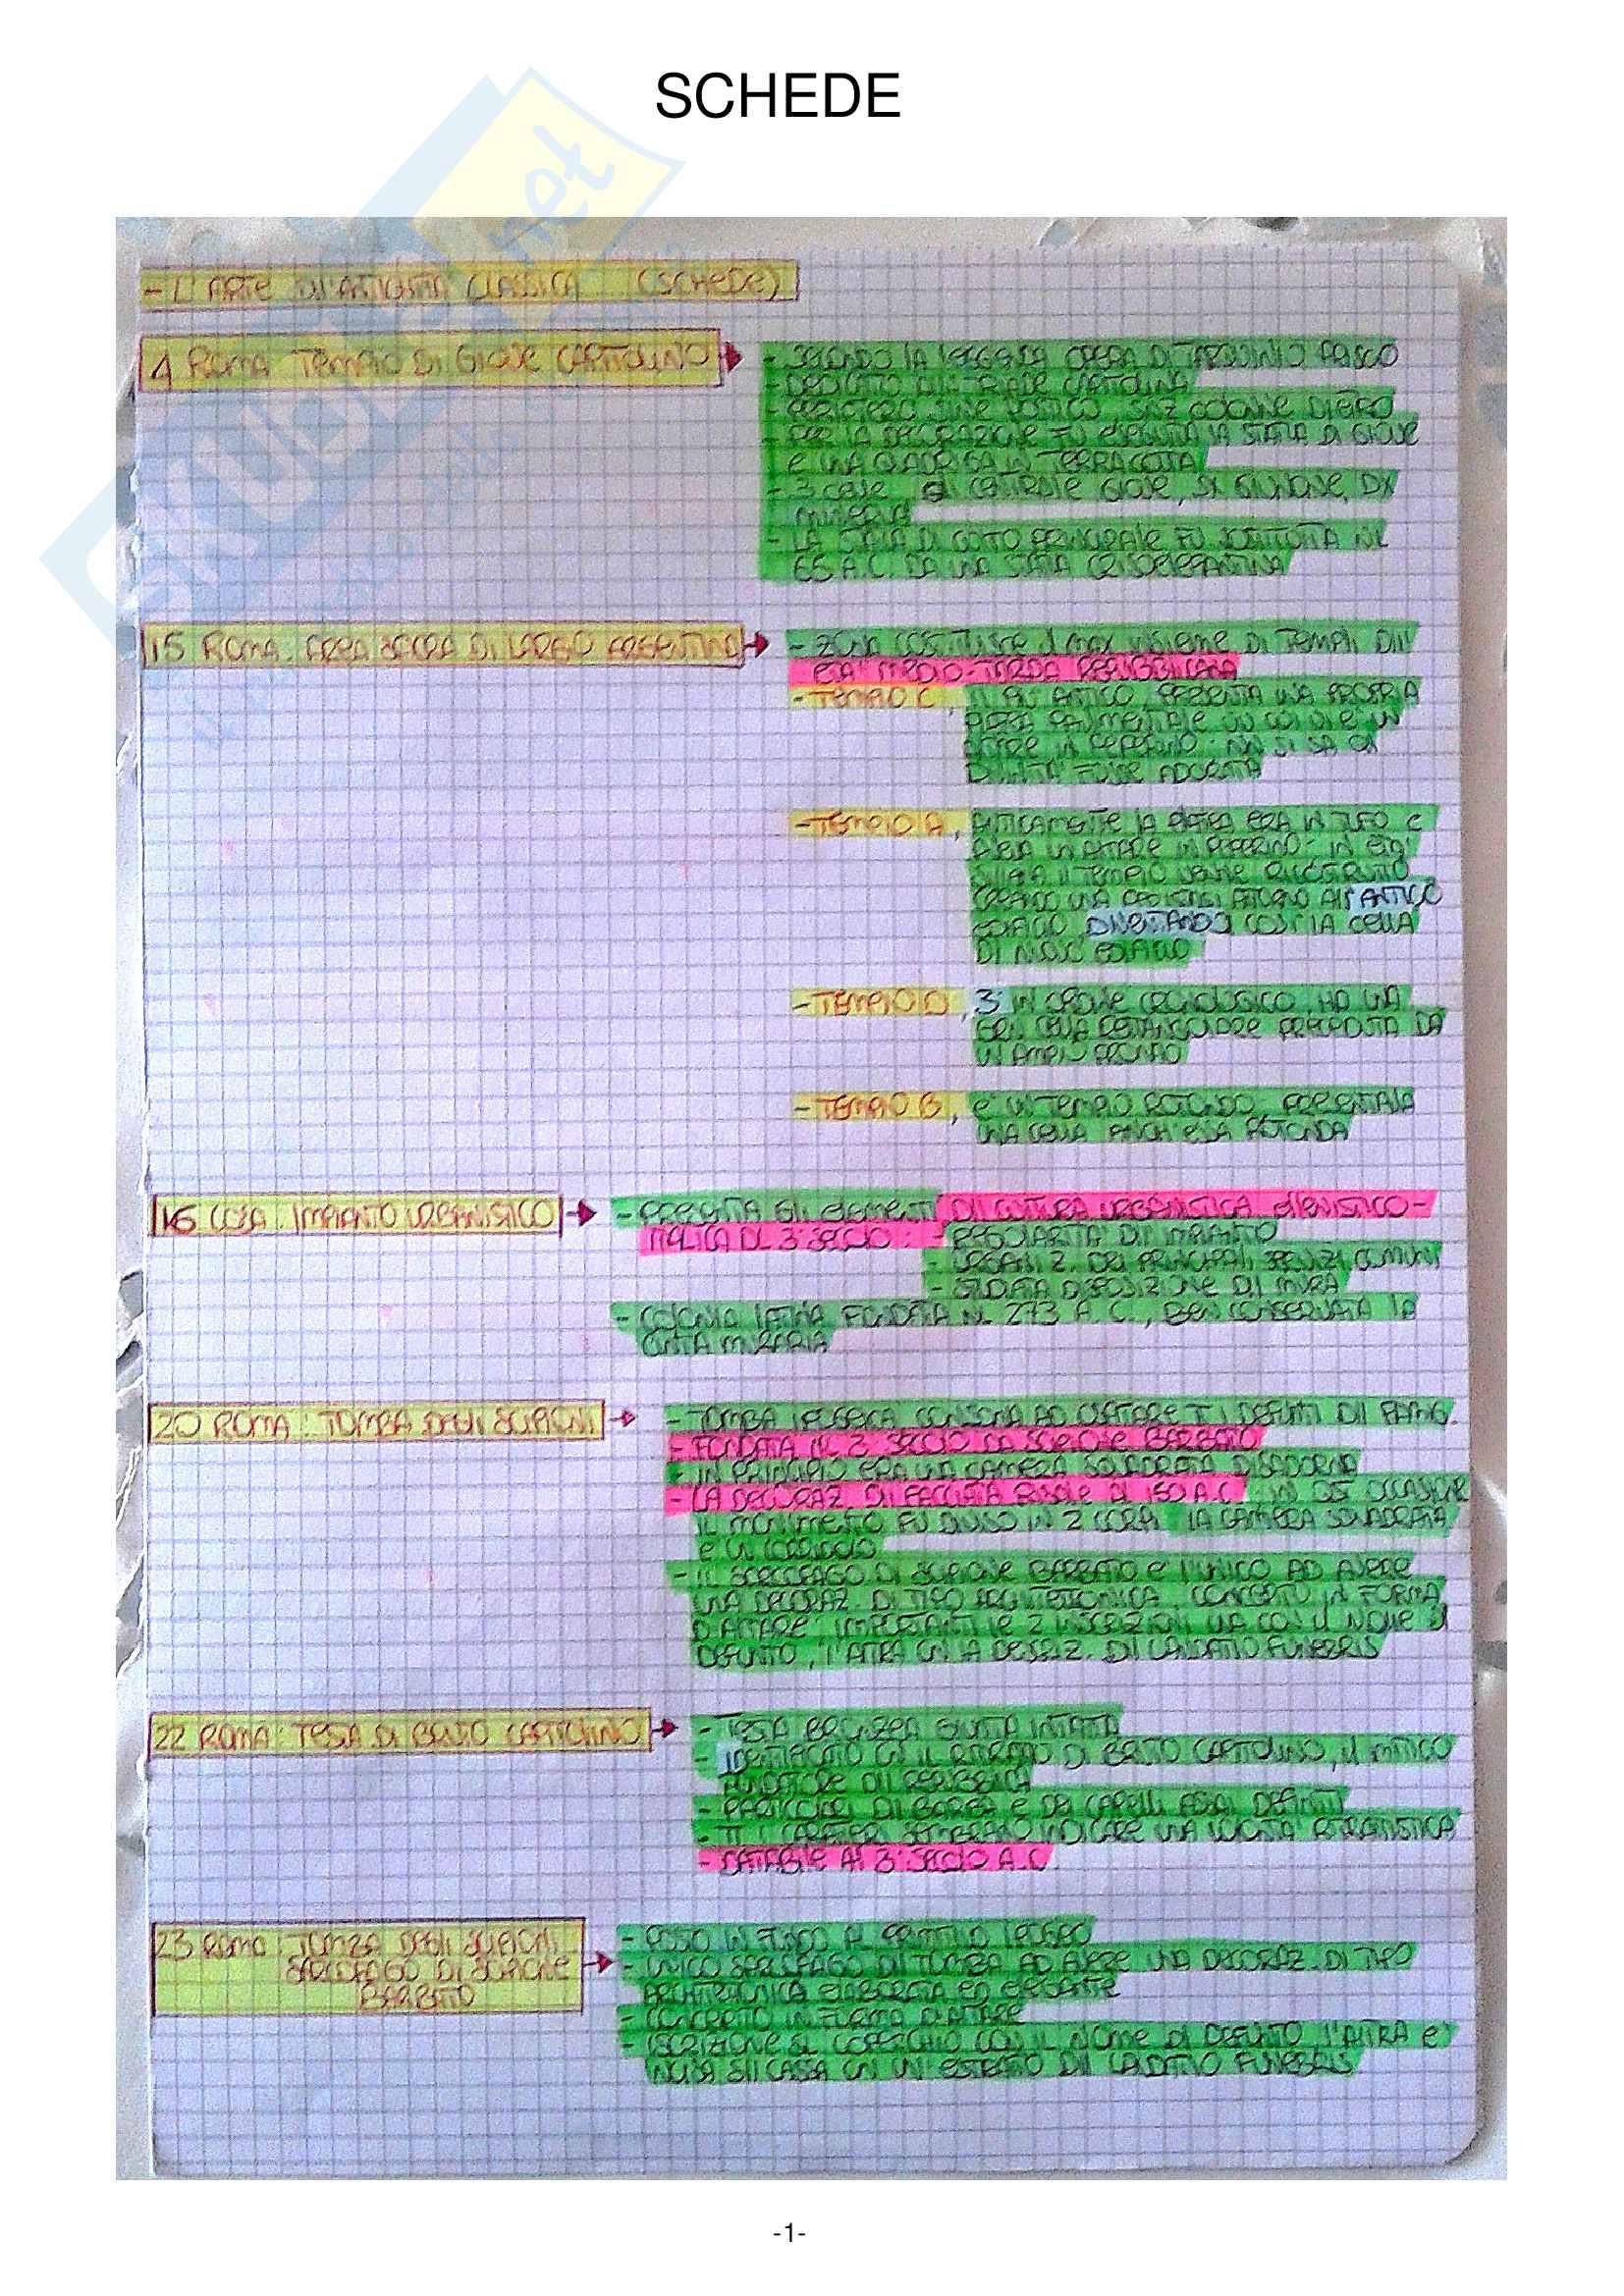 SCHEDE
SKUOLA.net
- L'ARTE DI ANTICHITÀ CLASSICA (SCHEDE)
1 ROMA TEMPIO DI GIOVE CAPITOLINO
- SECONDO LA LEGGENDA OPERA DI TARQUINIO PRISCO
- DEDICATO ALLA TRIADE CAPITOLINA
- PERIPTERO SINE POSTICO, SNZ COLONNE DIETRO
- PER LA DECORAZIONE FU ESEGUITA LA STATUA DI GIOVE
E UNA QUADRIGA IN TERRACOTTA
- 3 CELLE CENTRALE GIOVE, SX GIUNONE, DX
MINERVA
- LA STATUA DI CULTO PRINCIPALE FU SOSTITUITA NL
65 A.C. DA UNA STATUA CRISOELEFANTINA
15 ROMA: AREA SACRA DI LARGO ARGENTINA
- ZONA COSTITUISCE IL MAX INSIEME DI TEMPLI DLL'
ETA' MEDIO-TARDA REPUBBLICANA
- TEMPIO C, IL PIÙ ANTICO, PRESENTA UNA PROPRIA
PIAZZA PAVIMENTALE UN E UN
ALTARE IN PEPERINO: NN SI SA QL
DIVINITÀ FOSSE ADORATA
- TEMPIO A, ANTICAMENTE LA PIETRA ERA IN TUFO E
AVEVA UN ALTARE IN PEPERINO. IN ETA'
IL TEMPIO VENNE RICOSTRUITO
CREANDO UNA ATTORNO ALL'ANTICO
EDIFICIO, DIVENTANDO COSI' LA CELLA
DI NUOVO EDIFICIO
- TEMPIO D, 3° IN ORDINE CRONOLOGICO, HA UNA
GRN CELLA RETTANGOLARE PRECEDUTA DA
UN AMPIO PRONAO
- TEMPIO B, E' UN TEMPIO ROTONDO, PRESENTAVA
UNA CELLA ANCH'ESSA ROTONDA
16 COSA: IMPIANTO URBANISTICO
- PRESENTA GLI ELEMENTI DI CULTURA URBANISTICA ELLENISTICO-
ITALICA DL 3° SECOLO: - REGOLARITÀ DI IMPIANTO
- ORGANIZZ. DEI PRINCIPALI SERVIZI COMUNI
- STUDIATA DISPOSIZIONE DI MURA
- COLONIA LATINA FONDATA NL 273 A.C., BEN CONSERVATA LA
CINTA MURARIA
20 ROMA: TOMBA DEGLI SCIPIONI
- TOMBA IPOGEICA, CONSONA AD OSPITARE TT I DEFUNTI DLL FAMIG.
- FONDATA NL 3° SECOLO DA SCIPIONE BARBATO
- IN PRINCIPIO ERA UNA CAMERA SQUADRATA DISADORNA
- LA DECORAZ. DI FACCIATA RISALE AL 150 A.C. IN QST OCCASIONE
IL MONUMENTO FU DIVISO IN 2 CORPI: LA CAMERA SQUADRATA
E UN CORRIDOIO
- IL SARCOFAGO DI SCIPIONE BARBATO E' L'UNICO AD AVERE
UNA DECORAZ. DI TIPO ARCHITETTONICA, CONCEPITO IN FORMA
D'ALTARE. IMPORTANTI LE 2 INSCRIZIONI UNA CON IL NOME DI
DEFUNTO, L'ALTRA CN LA DI LAUDATIO FUNEBRIS
22 ROMA: TESTA DI BRUTO CAPITOLINO
- TESTA BRONZEA GIUNTA INTATTA
- IDENTIFICATO CN IL RITRATTO DI BRUTO CAPITOLINO, IL MITICO
FONDATORE DLL REPUBBLICA
- PARTICOLARI DI BARBA E DEI CAPELLI ASSAI DEFINITI
- TT I CARATTERI SEMBRANO INDICARE UNA RITRATTISTICA
- DATABILE AL 3° SECOLO A.C.
23 ROMA: TOMBA DEGLI SCIPIONI
SARCOFAGO DI SCIPIONE
BARBATO
- POSTO IN FONDO AL PRIMITIVO IPOGEO
- UNICO SARCOFAGO DI TOMBA AD AVERE UNA DECORAZ. DI TIPO
ARCHITETTONICA ELABORATA ED ELEGANTE
- CONCEPITO IN FORMA D'ALTARE
- ISCRIZIONE SL COPERCHIO CON IL NOME DI DEFUNTO, L'ALTRA E'
INCISA SLL CASSA CN UN ESTRATTO DLL LAUDATIO FUNEBRIS
-1-